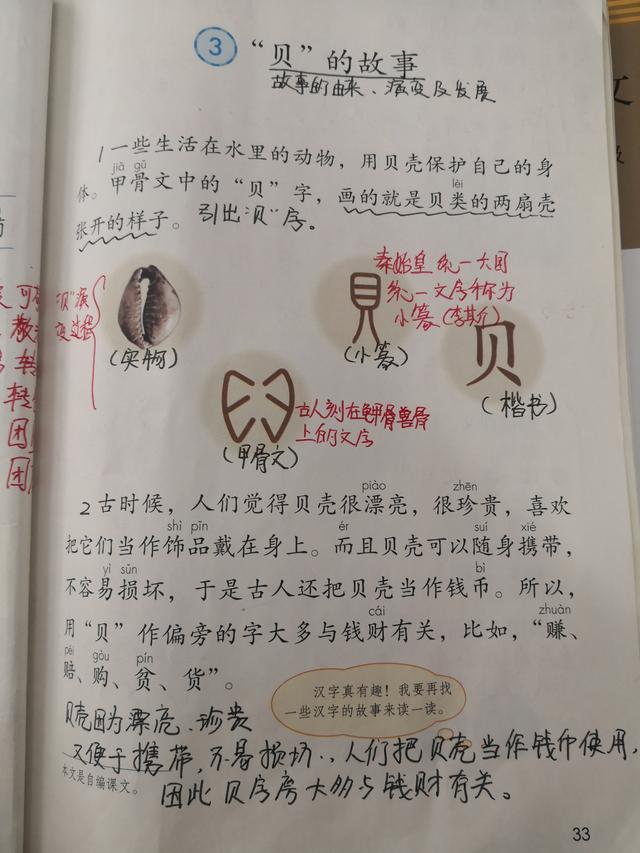 3 “贝”的故事
故事的由来、演变及发展
1一些生活在水里的动物，用贝壳保护自己的身
jiǎ gǔ lèi
体。甲骨文中的“贝”字，画的就是贝类的两扇壳
张开的样子。引出“贝”字。
“贝”演
变过程
(实物)
秦始皇统一六国
统一文字称为
小篆(李斯)
貝
(小篆)
贝
(楷书)
古人刻在龟甲兽骨
上的文字
(甲骨文)
piào zhēn
2古时候，人们觉得贝壳很漂亮，很珍贵，喜欢
shì pǐn ér suí xié
把它们当作饰品戴在身上。而且贝壳可以随身携带，
yì sǔn bì
不容易损坏，于是古人还把贝壳当作钱币。所以，
cái zhuàn
用“贝”作偏旁的字大多与钱财有关，比如，“赚、
péi gòu pín
赔、购、贫、货”。
汉字真有趣！我要再找
一些汉字的故事来读一读。
贝壳因为漂亮、珍贵
又便于携带，不易损坏，人们把贝壳当作钱币使用，
本文是自编课文。
因此贝字旁大多与钱财有关。
33
转
团
团